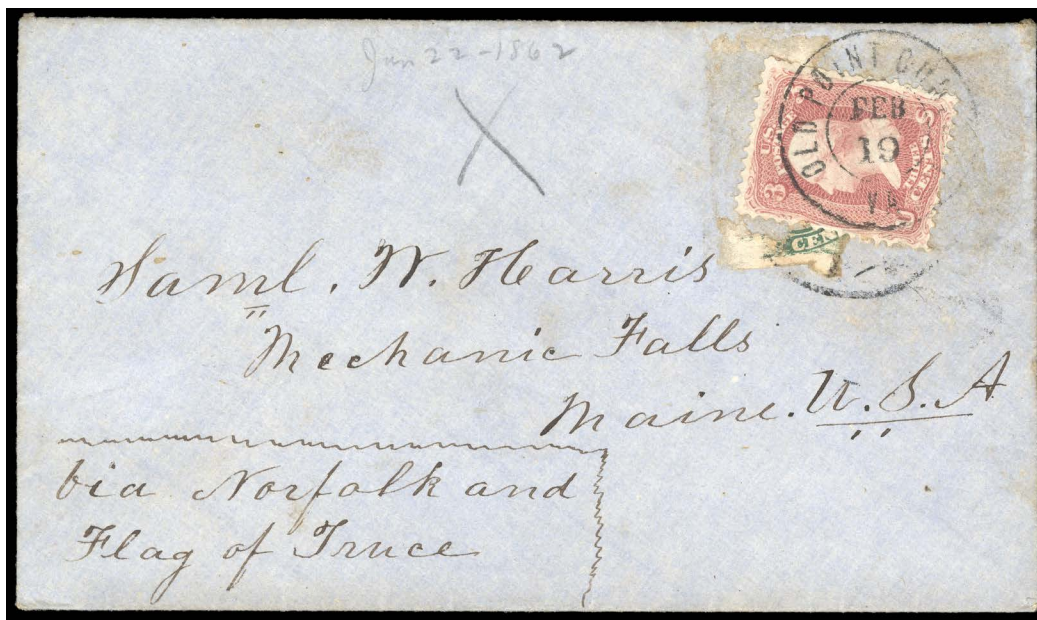 Jan 22-1862
X
OLD POINT COM
FEB
19
VA
U.S.
3
CENTS
CEN
Saml. W. Harris
Mechanic Falls
Maine. U.S.A
via Norfolk and
Flag of Truce